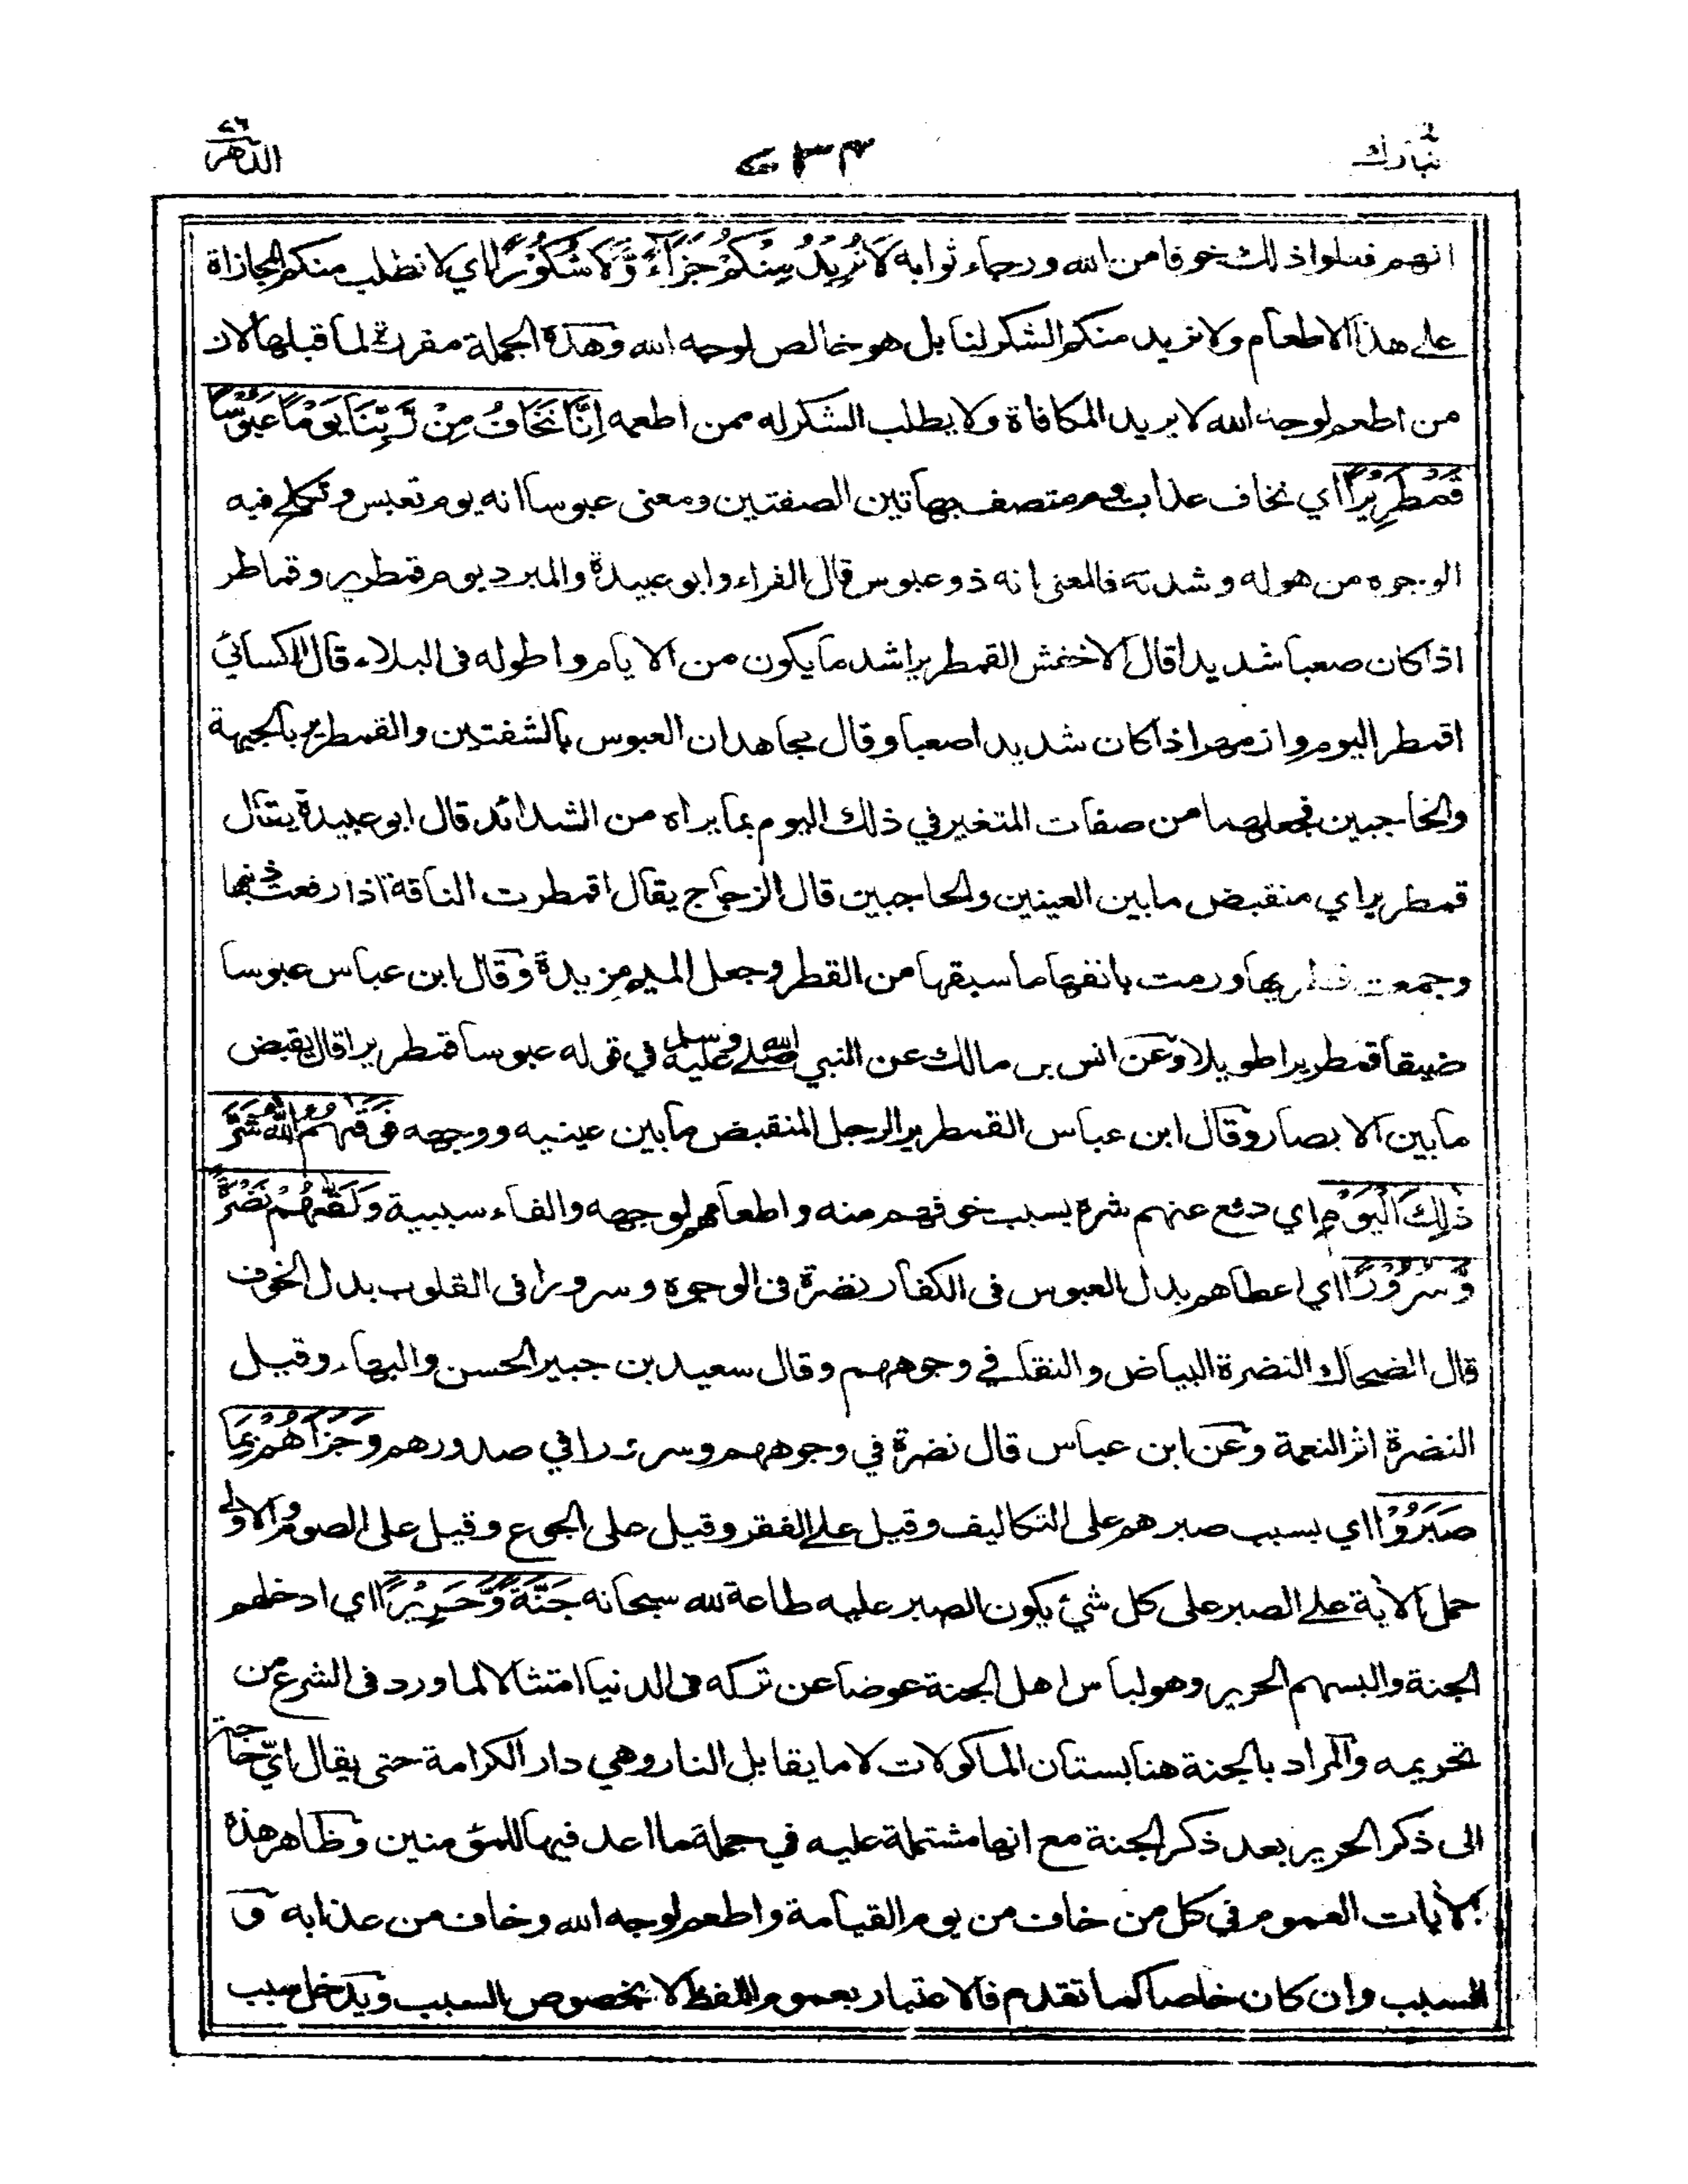 تبارك
٧٣٤
الدهر ٧٦
انهم فعلوا ذلك خوفا من الله ورجاء ثوابه لَا نُرِيْدُ مِنْكُمْ جَزَآءً وَّلَا شُكُوْرًا اي لا نطلب منكم المجازاة
على هذا الاطعام ولا نريد منكم الشكر لنا بل هو خالص لوجه الله وهذه الجملة مقررة لما قبلها لان
من اطعم لوجه الله لا يريد المكافاة ولا يطلب الشكر له ممن اطعمه اِنَّا نَخَافُ مِنْ رَّبِّنَا يَوْمًا عَبُوْسًا
قَمْطَرِيْرًا اي نخاف عذاب يوم متصف بهاتين الصفتين ومعنى عبوسا انه يوم تعبس وتكلح فيه
الوجوه من هوله وشدته فالمعنى انه ذو عبوس قال الفراء وابو عبيدة والمبرد يوم قمطرير وقماطر
اذا كان صعبا شديدا قال الاخفش القمطرير اشد ما يكون من الايام واطوله فى البلاء قال الكسائي
اقمطر اليوم وازمهر اذا كان شديدا صعبا وقال مجاهد ان العبوس بالشفتين والقمطرير بالجبهة
والحاجبين فجعلهما من صفات المتغير في ذلك اليوم بما يراه من الشدائد قال ابو عبيدة يقال
قمطرير اي منقبض ما بين العينين والحاجبين قال الزجاج يقال اقمطرت الناقة اذا رفعت ذنبها
وجمعت قطريها ورمت بانفها ما سبقها من القطر وجعل الميم مزيدة وقال ابن عباس عبوسا
ضيقا قمطريرا طويلا وعن انس بن مالك عن النبي صلى الله عليه وسلم في قوله عبوسا قمطريرا قال يقبض
ما بين الابصار وقال ابن عباس القمطرير الرجل المنقبض ما بين عينيه ووجهه فَوَقٰهُمُ اللّٰهُ شَرَّ
ذٰلِكَ الْيَوْمِ اي دفع عنهم شره بسبب خوفهم منه واطعامهم لوجهه والفاء سببية وَلَقّٰهُمْ نَضْرَةً
وَّسُرُوْرًا اي اعطاهم بدل العبوس فى الكفار نضرة فى الوجوه وسرورا فى القلوب بدل الخوف
قال الضحاك النضرة البياض والنقاء في وجوههم وقال سعيد بن جبير الحسن والبهاء وقيل
النضرة اثر النعمة وعن ابن عباس قال نضرة في وجوههم وسرورا في صدورهم وَجَزٰىهُمْ بِمَا
صَبَرُوْا اي بسبب صبرهم على التكاليف وقيل على الفقر وقيل على الجوع وقيل على الصوم والاولى
حمل الآية على الصبر على كل شئ يكون الصبر عليه طاعة لله سبحانه جَنَّةً وَّحَرِيْرًا اي ادخلهم
الجنة والبسهم الحرير وهو لباس اهل الجنة عوضا عن تركه فى الدنيا امتثالا لما ورد فى الشرع من
تحريمه والمراد بالجنة هنا بستان الماكولات لا ما يقابل النار وهي دار الكرامة حتى يقال اي حاجة
الى ذكر الحرير بعد ذكر الجنة مع انها مشتملة عليه في جملة ما اعد فيها للمؤمنين وظاهر هذه
الآيات العموم في كل من خاف من يوم القيامة واطعم لوجه الله وخاف من عذابه و
السبب وان كان خاصا كما تقدم فالاعتبار بعموم اللفظ لا بخصوص السبب ويدخل سبب